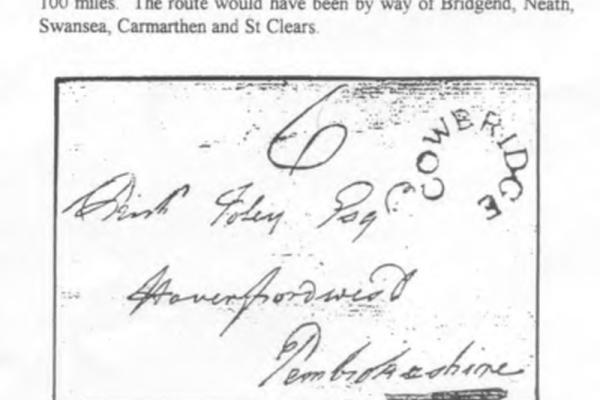 100 miles. The route would have been by way of Bridgend, Neath,
Swansea, Carmarthen and St Clears.
6
COWERIDCE
Foley Esqr
Haverfordwest
Pembrokeshire